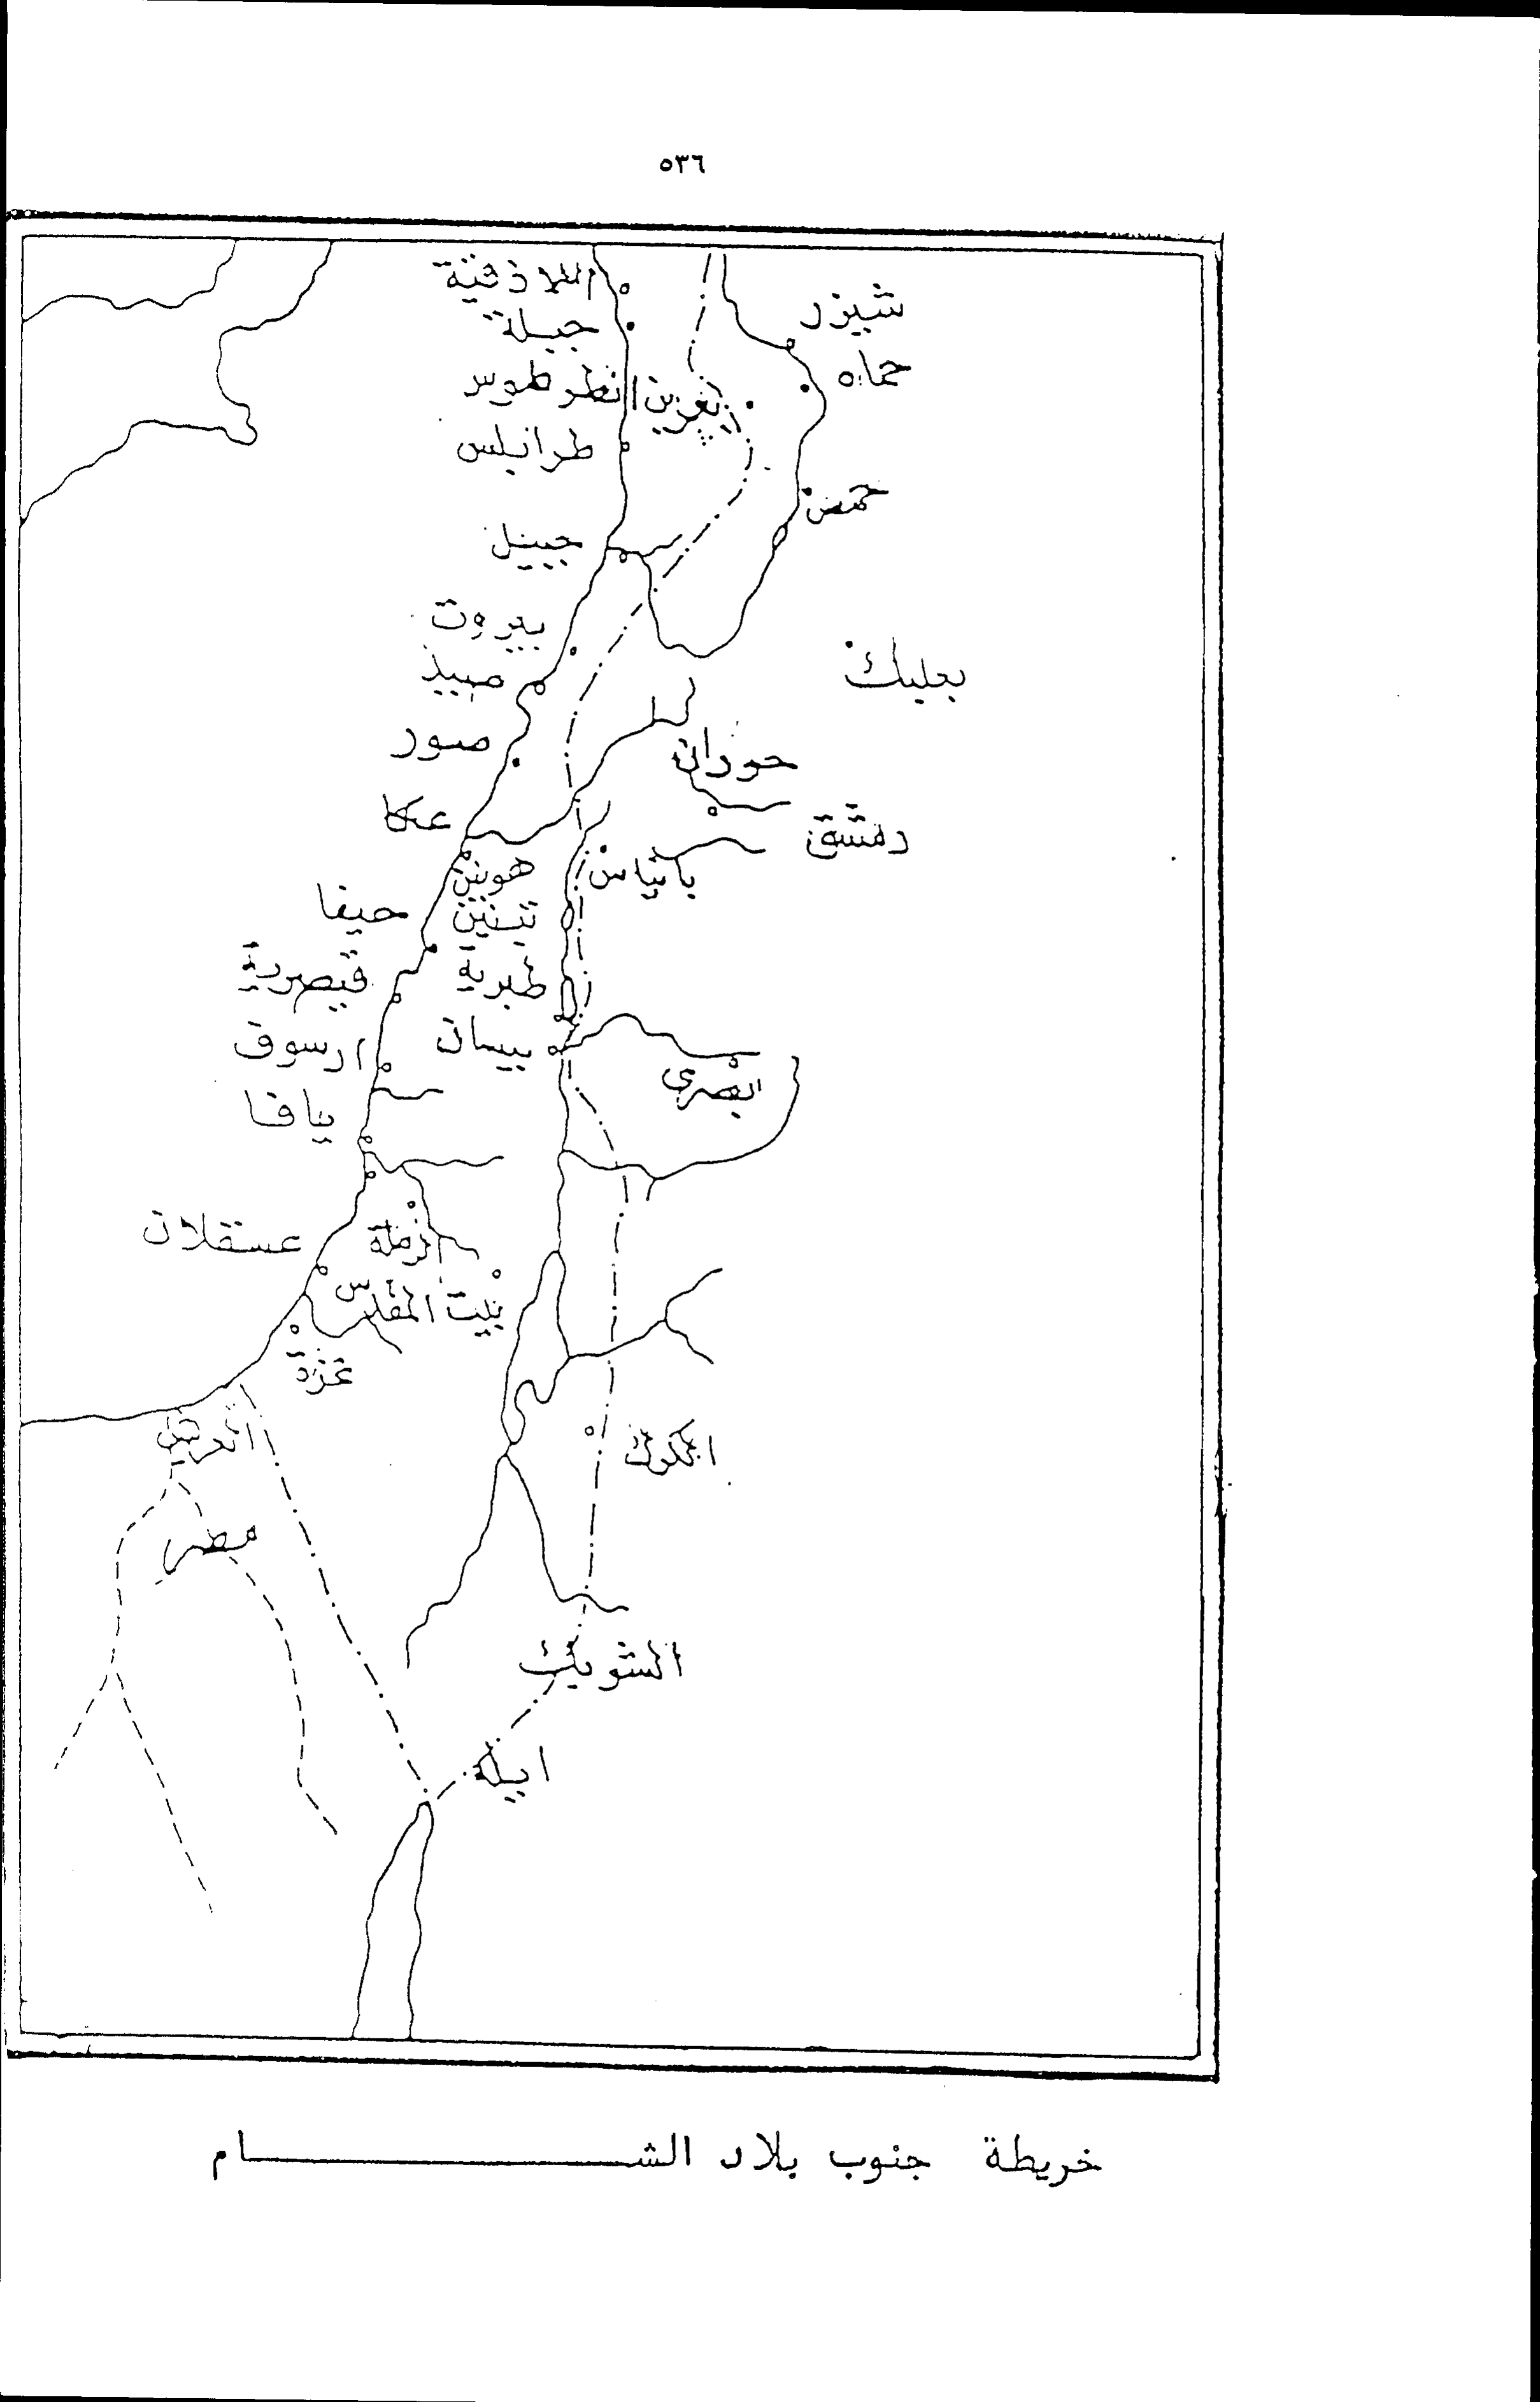 ٥٣٦
اللاذقية
شيزر
جبلة
حماه
انطرطوس
طرابلس
حمص
جبيل
بيروت
بعلبك
صور
حوران
عكا
دمشق
هونين
بانياس
حيفا
تبنين
قيصرية
طبرية
ارسوف
بيسان
بصرى
يافا
عسقلان
الرملة
بيت المقدس
غزة
العريش
الكرك
مصر
الشوبك
ايلة
خريطة جنوب بلاد الشــــــــــام